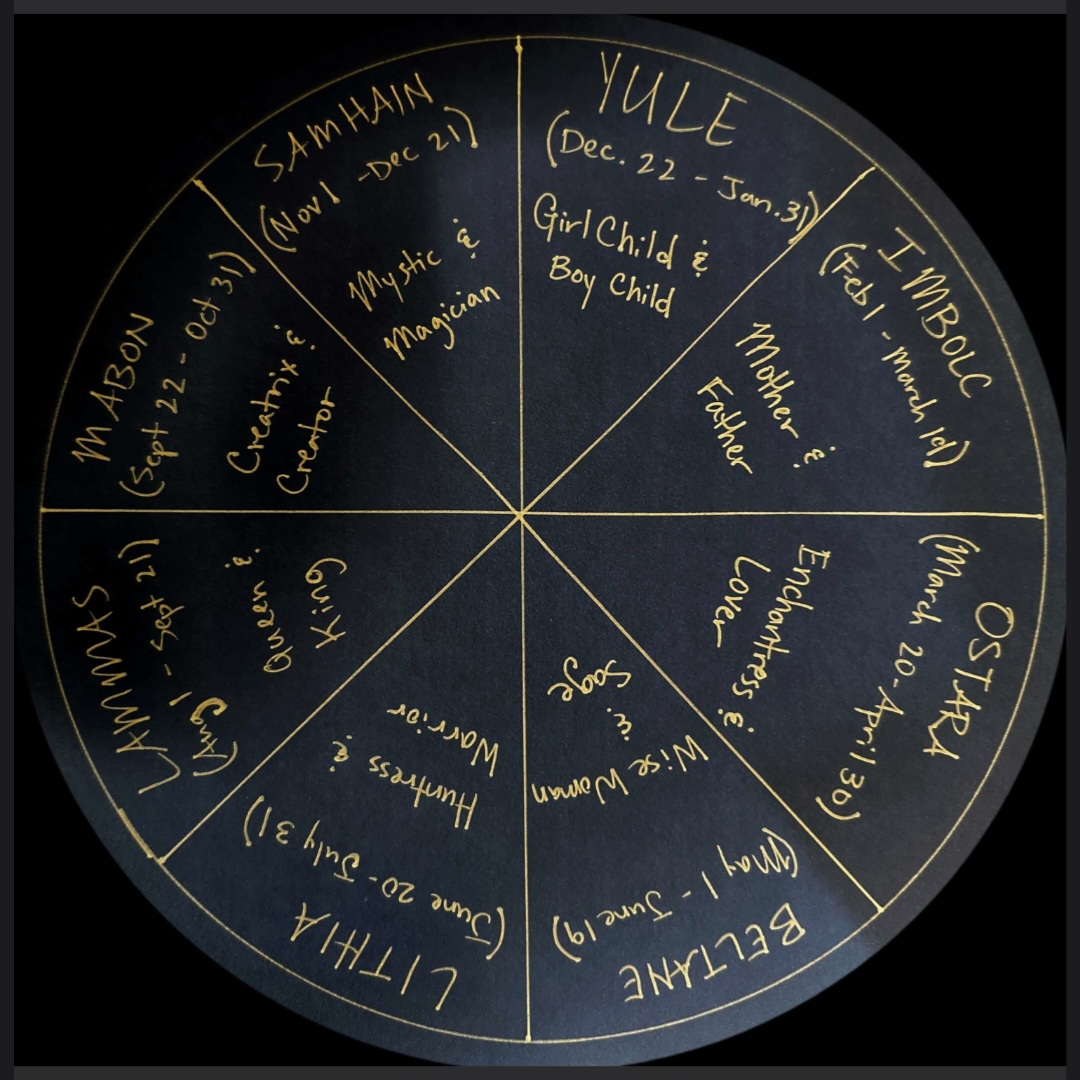 YULE
(Dec. 22 - Jan. 31)
Girl Child &
Boy Child
IMBOLC
(Feb 1 - March 19)
Mother &
Father
OSTARA
(March 20 - April 30)
Enchantress &
Lover
BELTANE
(May 1 - June 19)
Wise Woman
&
Sage
LITHIA
(June 20 - July 31)
Huntress &
Warrior
LAMMAS
(Aug 1 - Sept 21)
Queen &
King
MABON
(Sept 22 - Oct 31)
Creatrix &
Creator
SAMHAIN
(Nov 1 - Dec 21)
Mystic &
Magician